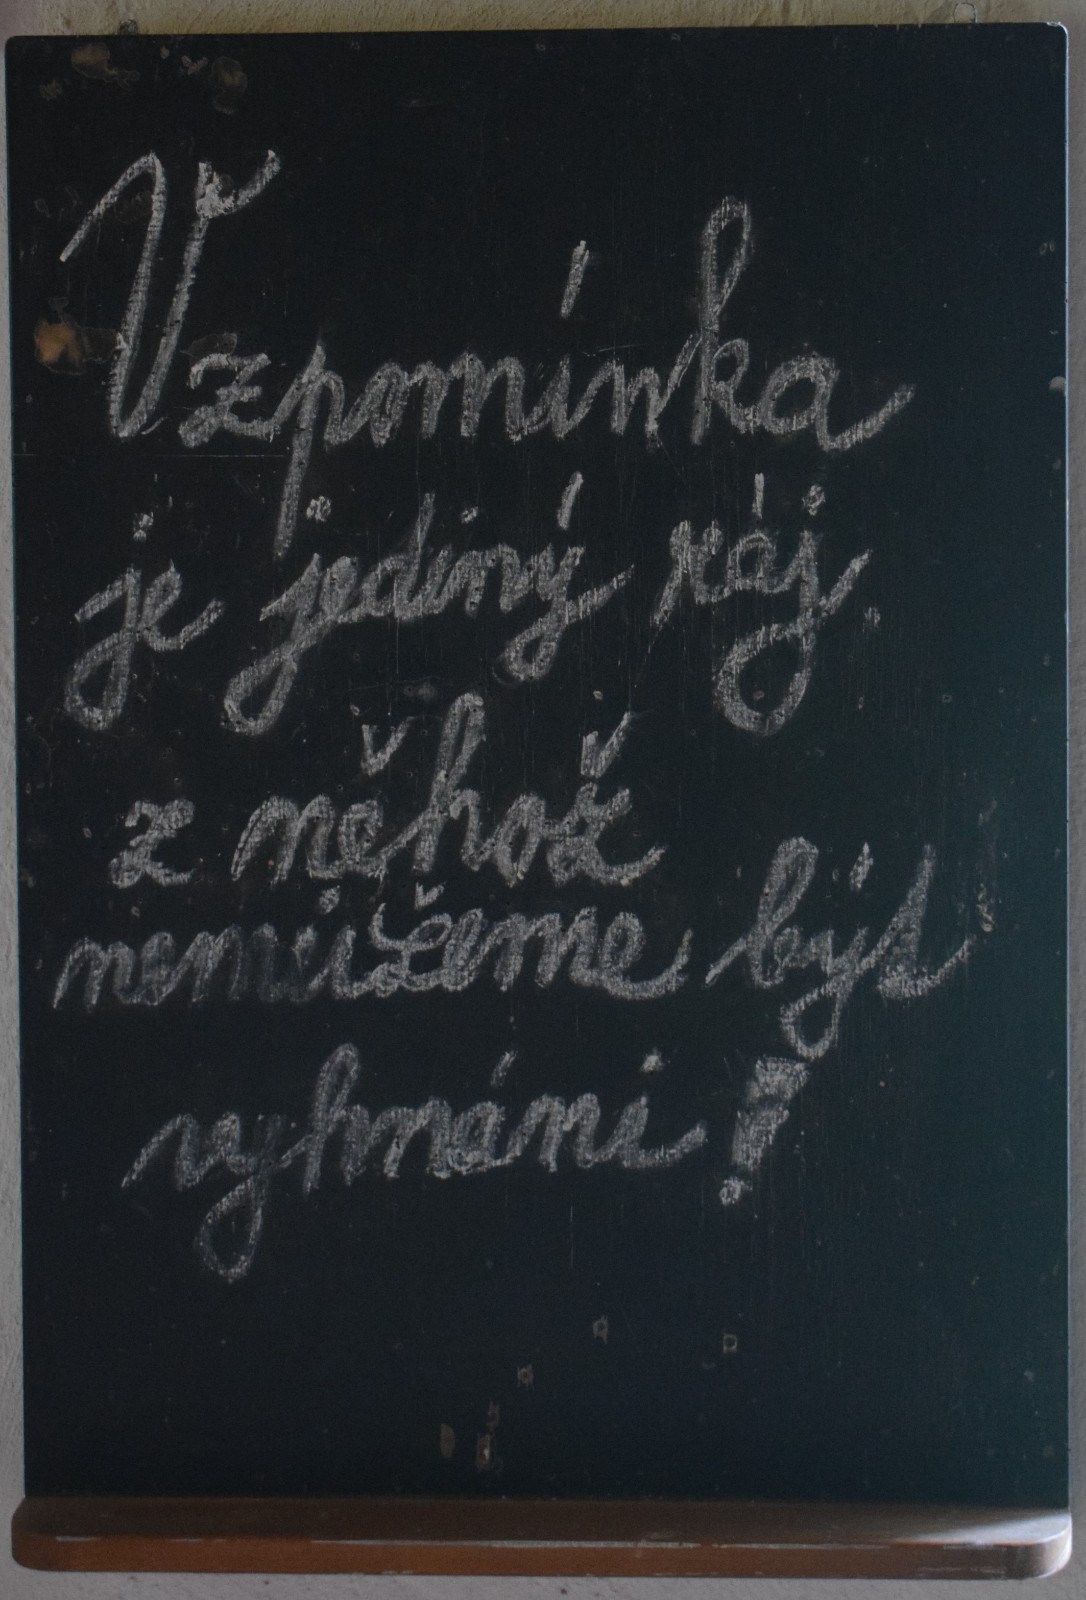 Vzpomínka
je jediný ráj
z něhož
nemůžeme být
vyhnáni!